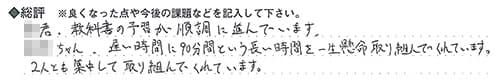 ◆総評 ※良くなった点や今後の課題などを記入して下さい。
君、教科書の予習が順調に進んでいます。
ちゃん、遅い時間に90分間という長い時間を一生懸命取り組んでくれています。
2人とも集中して取り組んでくれています。